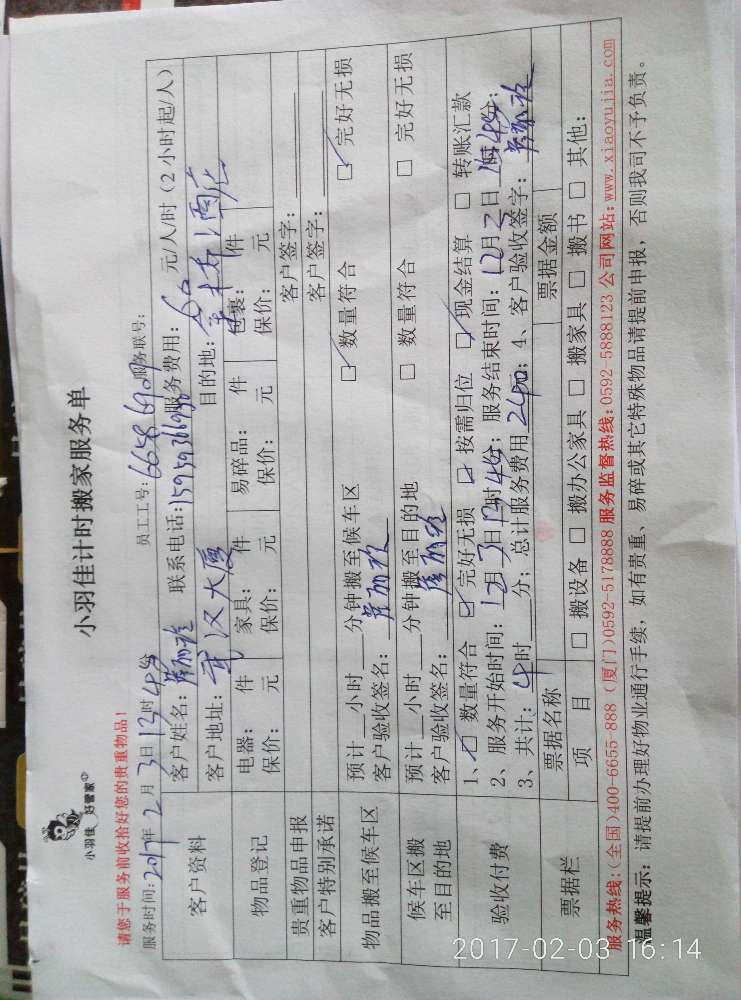 小羽佳 好管家
小羽佳计时搬家服务单
请您于服务前收拾好您的贵重物品!
员工工号:6658690 服务联号:
服务时间:2017年2月3日13时48分
客户资料
客户姓名: 联系电话: 服务费用:60元/人/时(2小时起/人)
客户地址:武汉大厦 目的地:酒店
物品登记
电器: 件 家具: 件 易碎品: 件 包裹: 件
保价: 元 保价: 元 保价: 元 保价: 元
贵重物品申报 客户签字:
客户特别承诺 客户签字:
物品搬至候车区
预计__小时__分钟搬至候车区 ☑ 数量符合 ☑ 完好无损
客户验收签名:
候车区搬至目的地
预计__小时__分钟搬至目的地 □ 数量符合 □ 完好无损
客户验收签名:
验收付费
1、☑ 数量符合 ☑ 完好无损 ☑ 按需归位 ☑ 现金结算 □ 转账汇款
2、服务开始时间: 月3日13时48分; 服务结束时间: 月 日 时48分;
3、共计:4时__分; 总计服务费用240元; 4、客户验收签字:
票据栏
票据名称 票据金额
项 目 □ 搬设备 □ 搬办公家具 □ 搬家具 □ 搬书 □ 其他:
服务热线:(全国)400-6655-888 (厦门)0592-5178888 服务监督热线:0592-5888123 公司网站:www.xiaoyujia.com
温馨提示: 请提前办理好物业通行手续, 如有贵重、易碎或其它特殊物品请提前申报, 否则我司不予负责。
2017-02-03 16:14